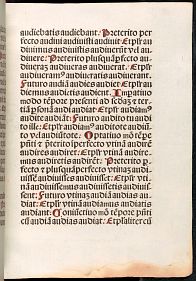 audiebatis audiebant. Preterito per
fecto audiui audiuisti audiuit Et pl'r au
diuimus audiuistis audiuerūt vel au
diuere. Preterito plusquāperfecto au
diueram audiueras audiuerat. Et pl'r
audiueram⁹ audiueratis audiuerant.
Futuro audiā audies audiet Et pl'r au
diemus audietis audient. Imperatiuo
modo tēpore presenti ad secūdā ⁊ ter
tiā psonā audi audiat Et pl'r audiam⁹
audite audiāt. Futuro audito tu audi
to ille. Et pl'r audiam⁹ auditote audiūt
to vel audiūtote. Optatiuo mō tēpore
pn̄ti ⁊ p̄terito īperfecto vtinā audirē
audires audiret. Et pl'r vtinā audire
mus audiretis audirēt. Preterito p
fecto ⁊ plusquāperfecto vtinā audi
uissē audiuisses audiuisset. Et pl'r vti
nā audiuissemus audiuissetis audiuis
sent. Futuro vtinā audiā audias au
diat Et pl'r vtinā audiamus audiatis
audiant. Coniūctiuo mō tēpore pn̄ti
cū audiā audias audiat. Et pluraliter cū